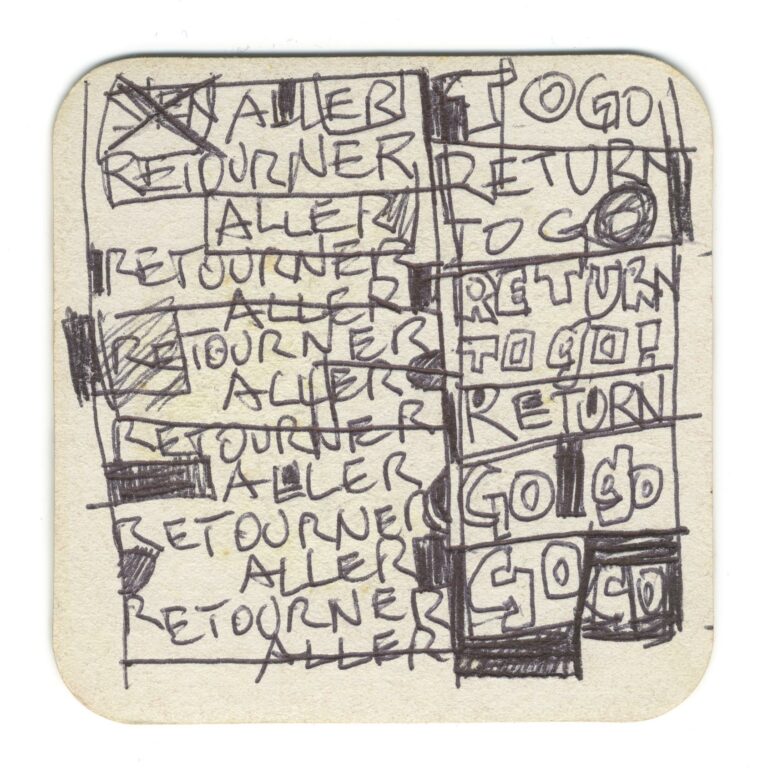 ALLER
RETOURNER
ALLER
RETOURNER
ALLER
RETOURNER
ALLER
RETOURNER
ALLER
RETOURNER
ALLER
RETOURNER
ALLER
TO GO
RETURN
TO GO
RETURN
TO gO!
RETURN
GO go
GO GO